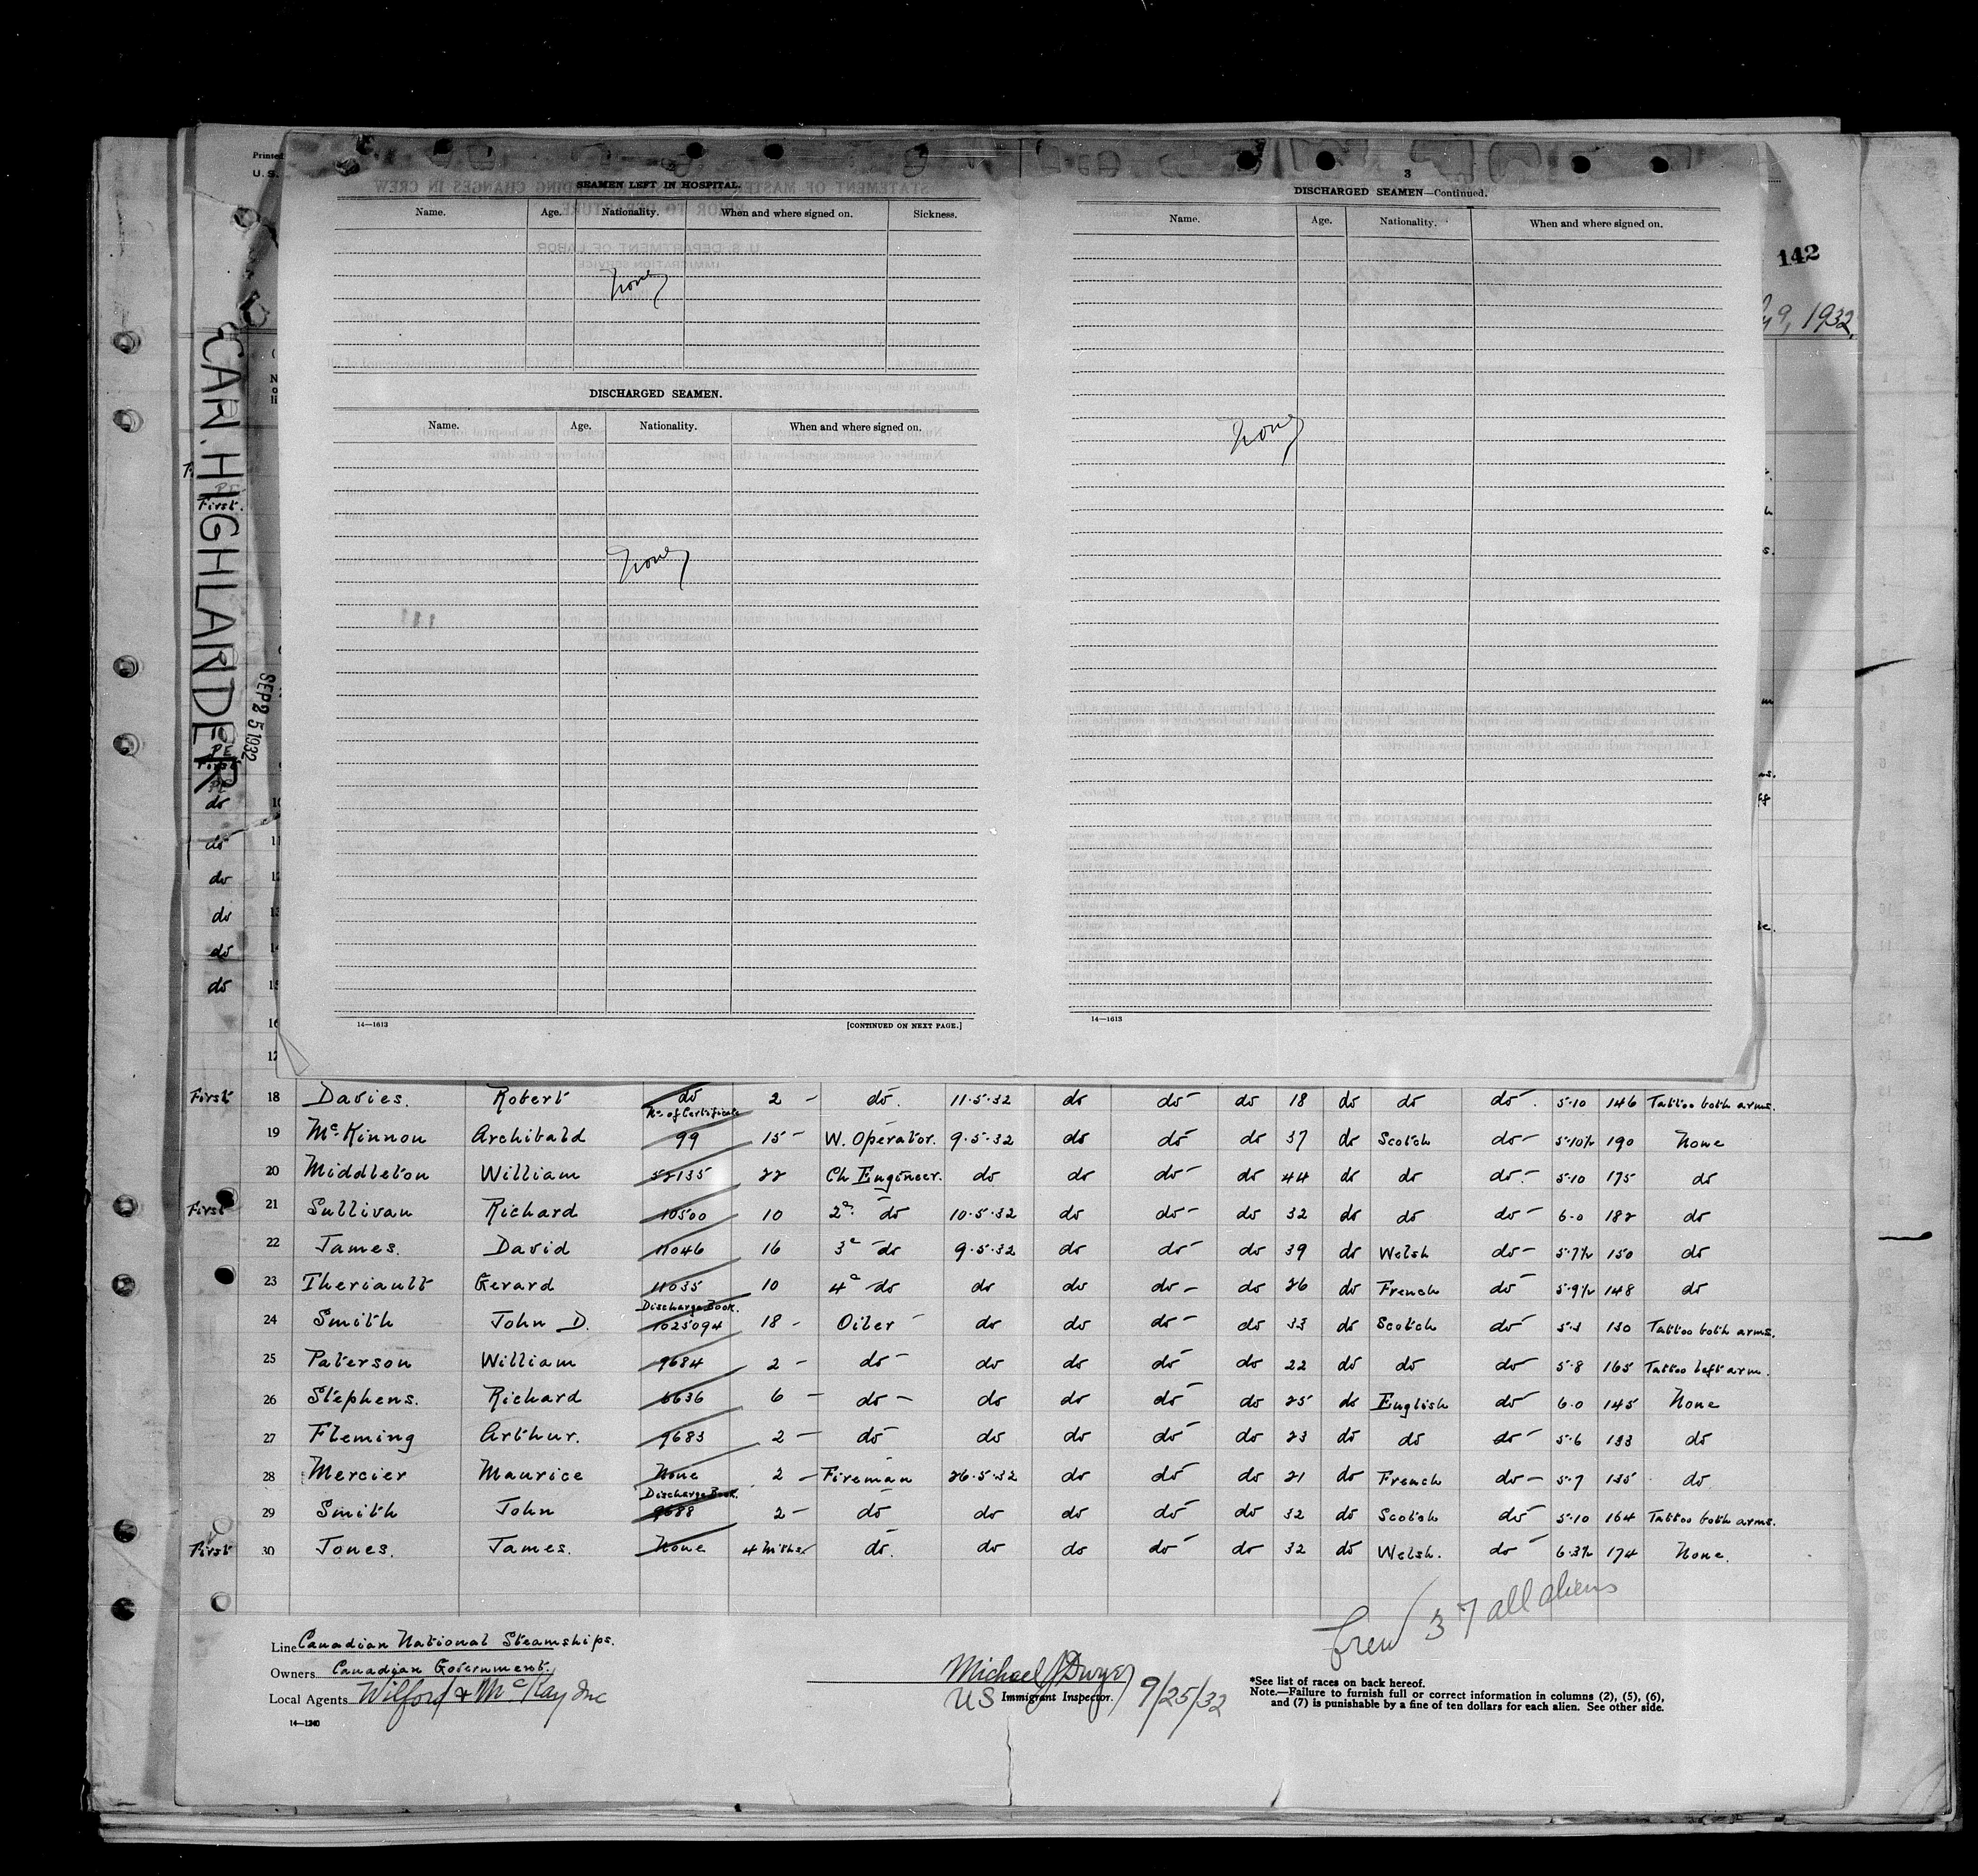 Printed
U. S.
CAN. HIGHLANDER
SEP 25 1932
142
9, 1932,
SEAMEN LEFT IN HOSPITAL.
Name. Age. Nationality. When and where signed on. Sickness.
None
DISCHARGED SEAMEN.
Name. Age. Nationality. When and where signed on.
None
14—1613 [CONTINUED ON NEXT PAGE.]
3
DISCHARGED SEAMEN—Continued.
Name. Age. Nationality. When and where signed on.
None
14—1613
First.
PE
First
PE
do 10
do 11
do 12
do 13
do 14
do 15
16
17
First 18 Davies. Robert do 2 – do. 11.5.32 do do do 18 do do do 5.10 146 Tattoo both arms.
No. of Certificate
19 McKinnon Archibald 99 15 – W. Operator. 9.5.32 do do do 37 do Scotch do 5.10½ 190 None
20 Middleton William 52135 22 Ch Engineer. do do do do 44 do do do 5.10 175 do
First 21 Sullivan Richard 10500 10 2d do 10.5.32 do do do 32 do do do 6.0 182 do
22 James. David 11046 16 3d do 9.5.32 do do do 39 do Welsh do 5.7½ 150 do
23 Theriault Gerard 11035 10 4d do do do do do 26 do French do 5.9½ 148 do
Discharge Book.
24 Smith John D. 1025094 18 – Oiler do do do do 33 do Scotch do 5.3 130 Tattoo both arms.
25 Paterson William 9684 2 – do do do do do 22 do do do 5.8 165 Tattoo left arm.
26 Stephens. Richard 6636 6 – do do do do do 25 do English do 6.0 145 None
27 Fleming Arthur. 9683 2 – do do do do do 23 do do do 5.6 133 do
28 Mercier Maurice None 2 – Fireman 26.5.32 do do do 21 do French do 5.7 135 do
Discharge Book.
29 Smith John 9688 2 – do do do do do 32 do Scotch do 5.10 164 Tattoo both arms.
First 30 Jones. James. None 4 mths. do. do do do do 32 do Welsh. do 6.3½ 174 None.
Crew 37 all aliens
Line Canadian National Steamships.
Owners Canadian Government.
Local Agents Wilford & McKay Inc
14—1240
Michael J Dwyer
US Immigrant Inspector. 9/25/32
*See list of races on back hereof.
Note.—Failure to furnish full or correct information in columns (2), (5), (6),
and (7) is punishable by a fine of ten dollars for each alien. See other side.